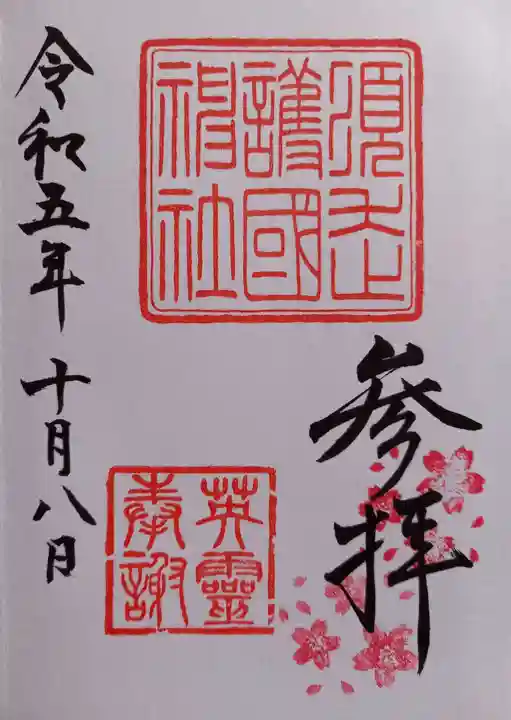 須走
護國
神社
参拝
英靈
奉謝
令和五年十月八日